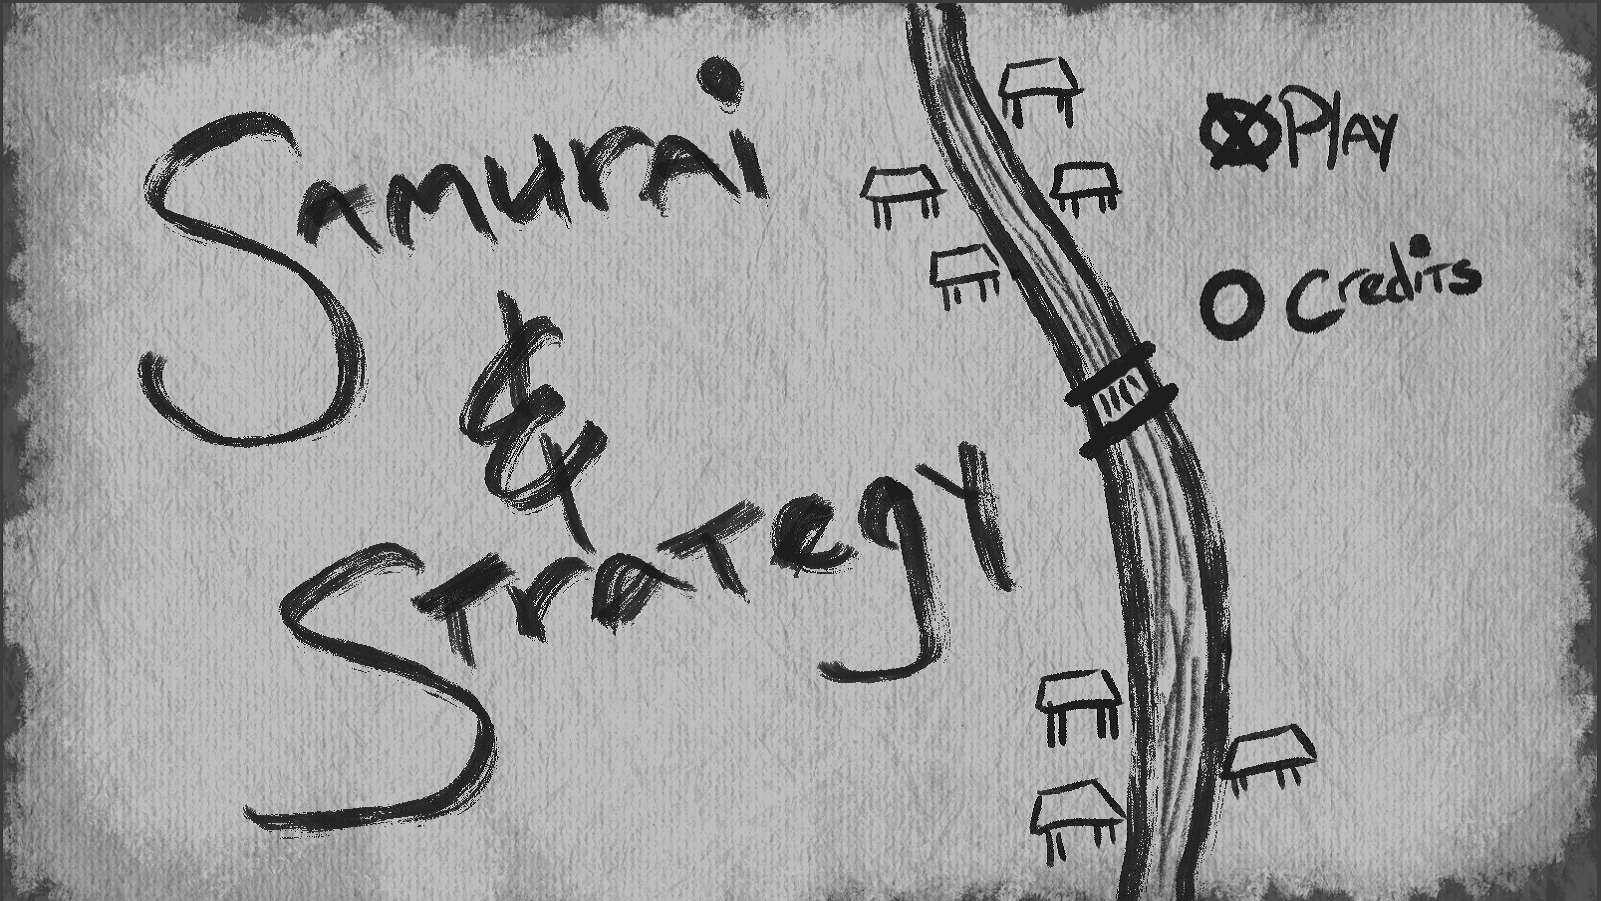 Samurai
&
Strategy
Play
Credits